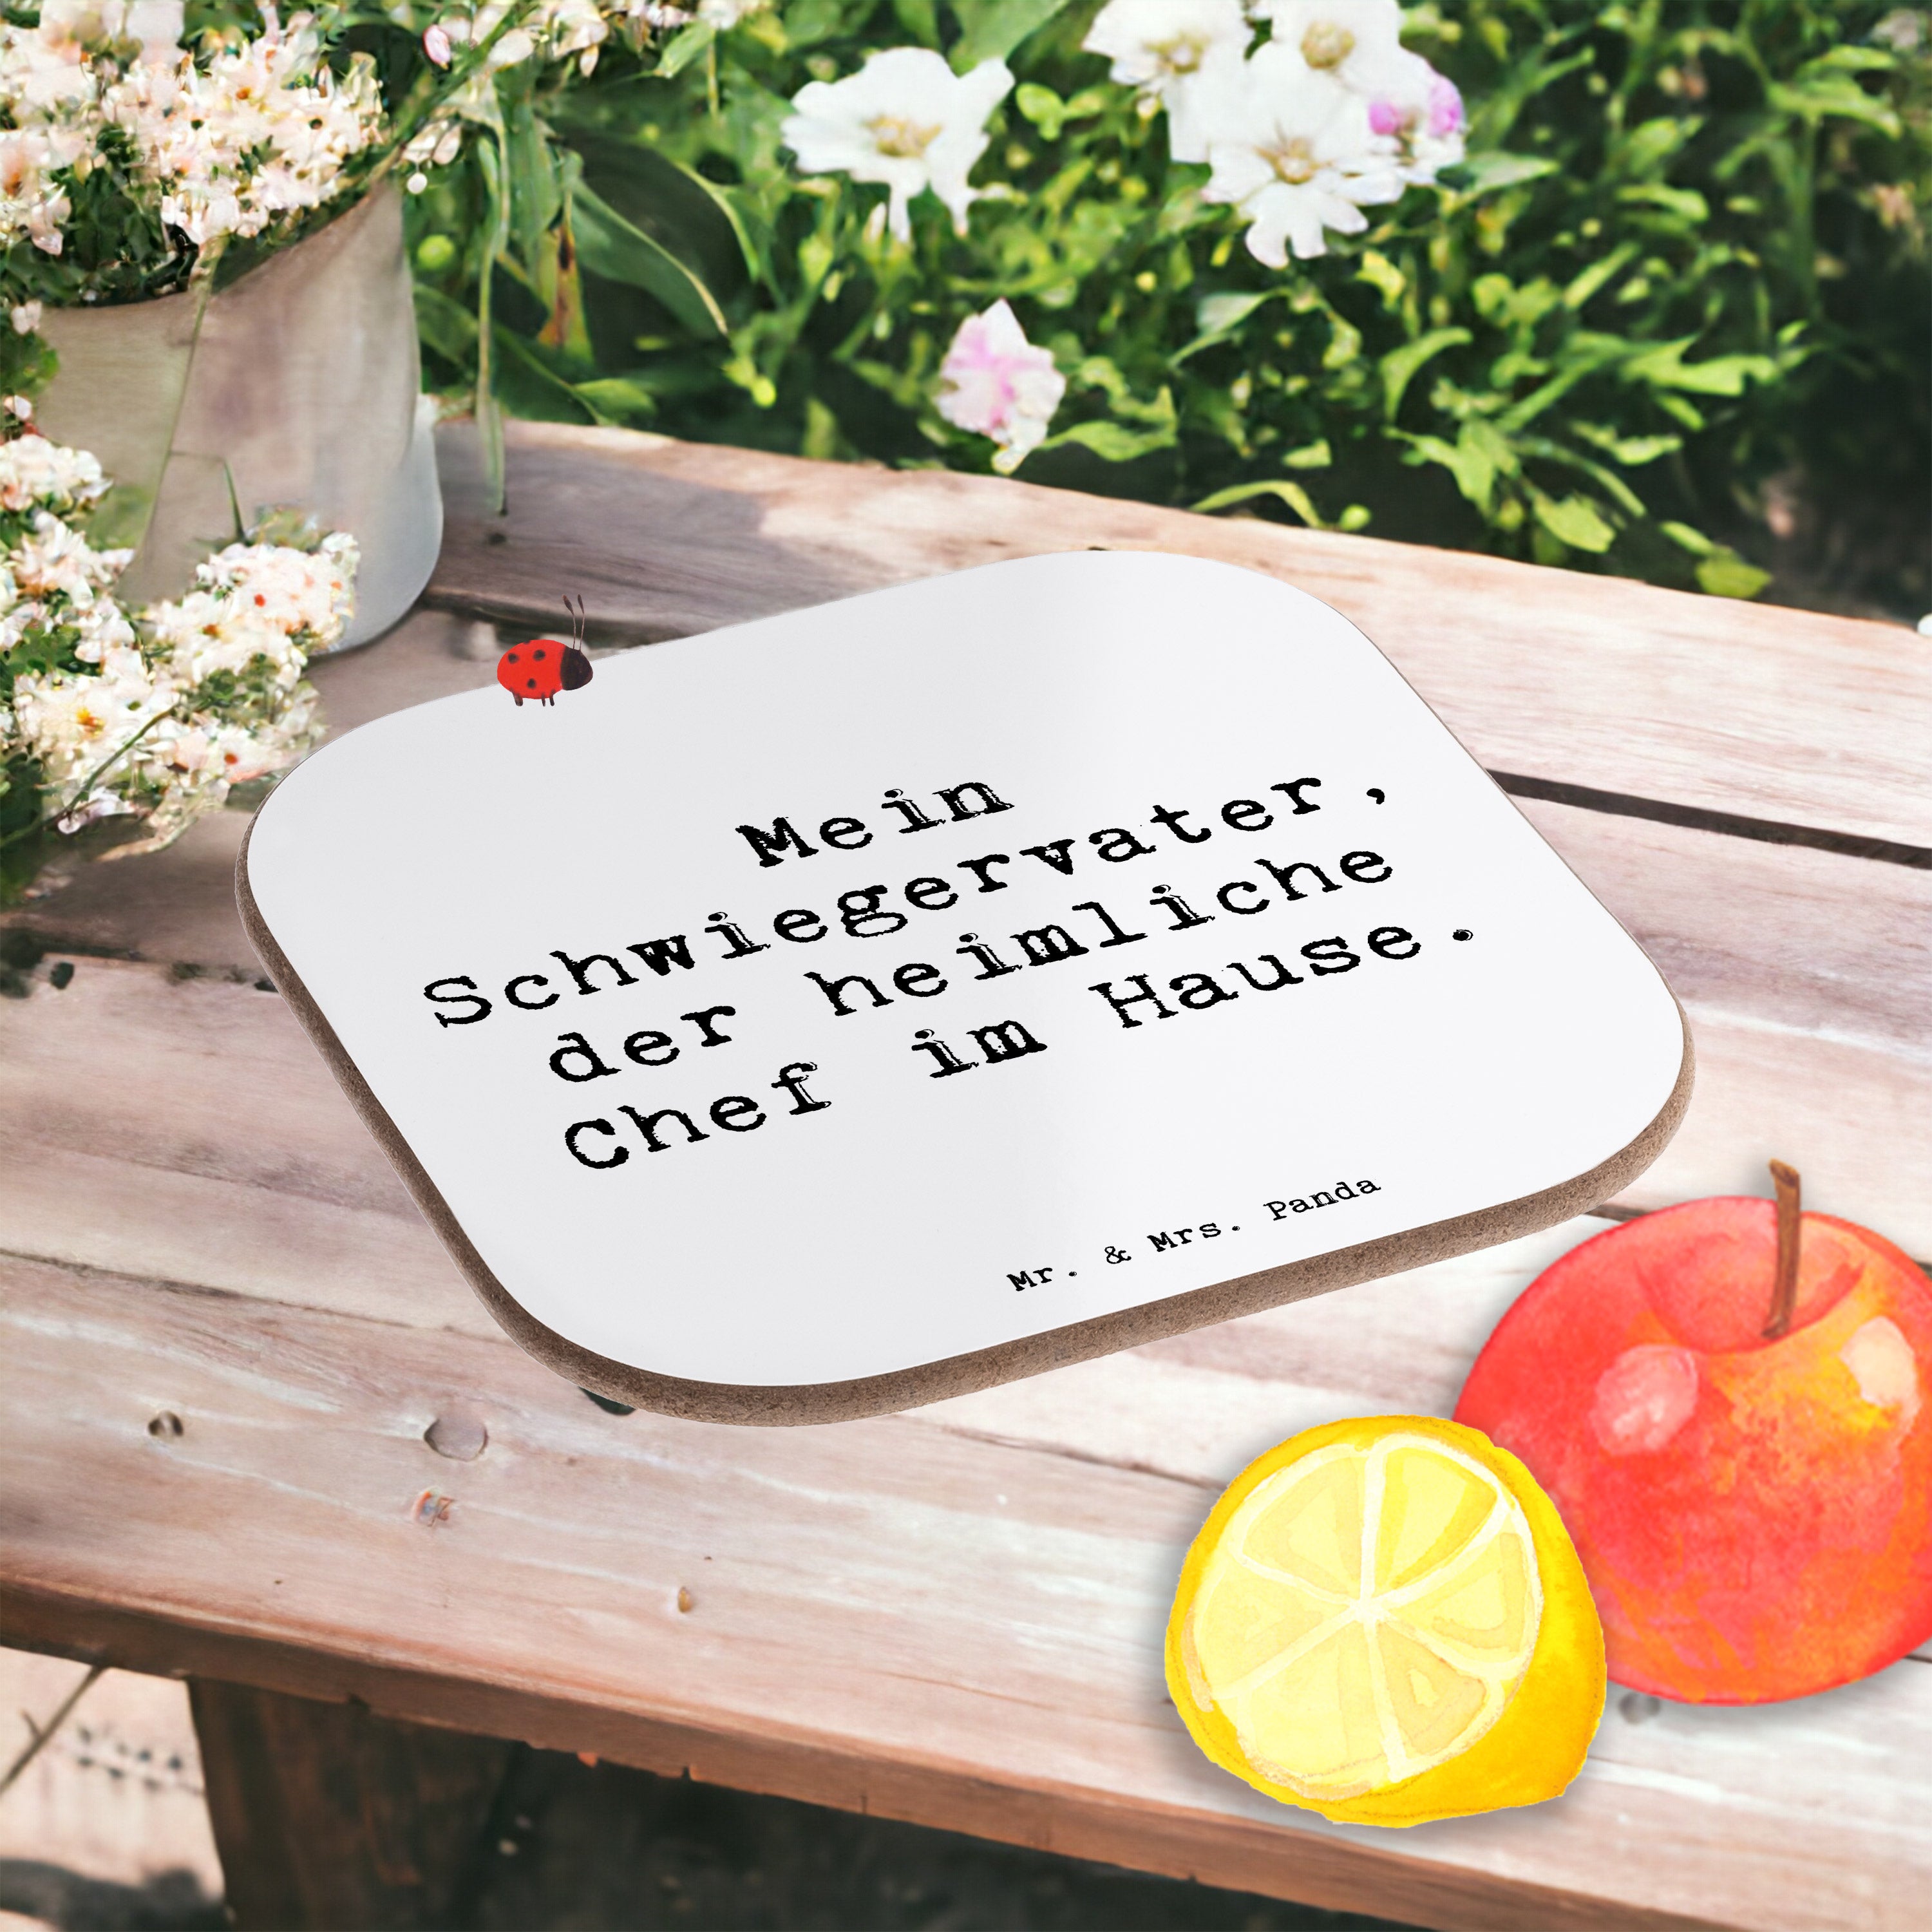 Mein
Schwiegervater,
der heimliche
Chef im Hause.
Mr. & Mrs. Panda